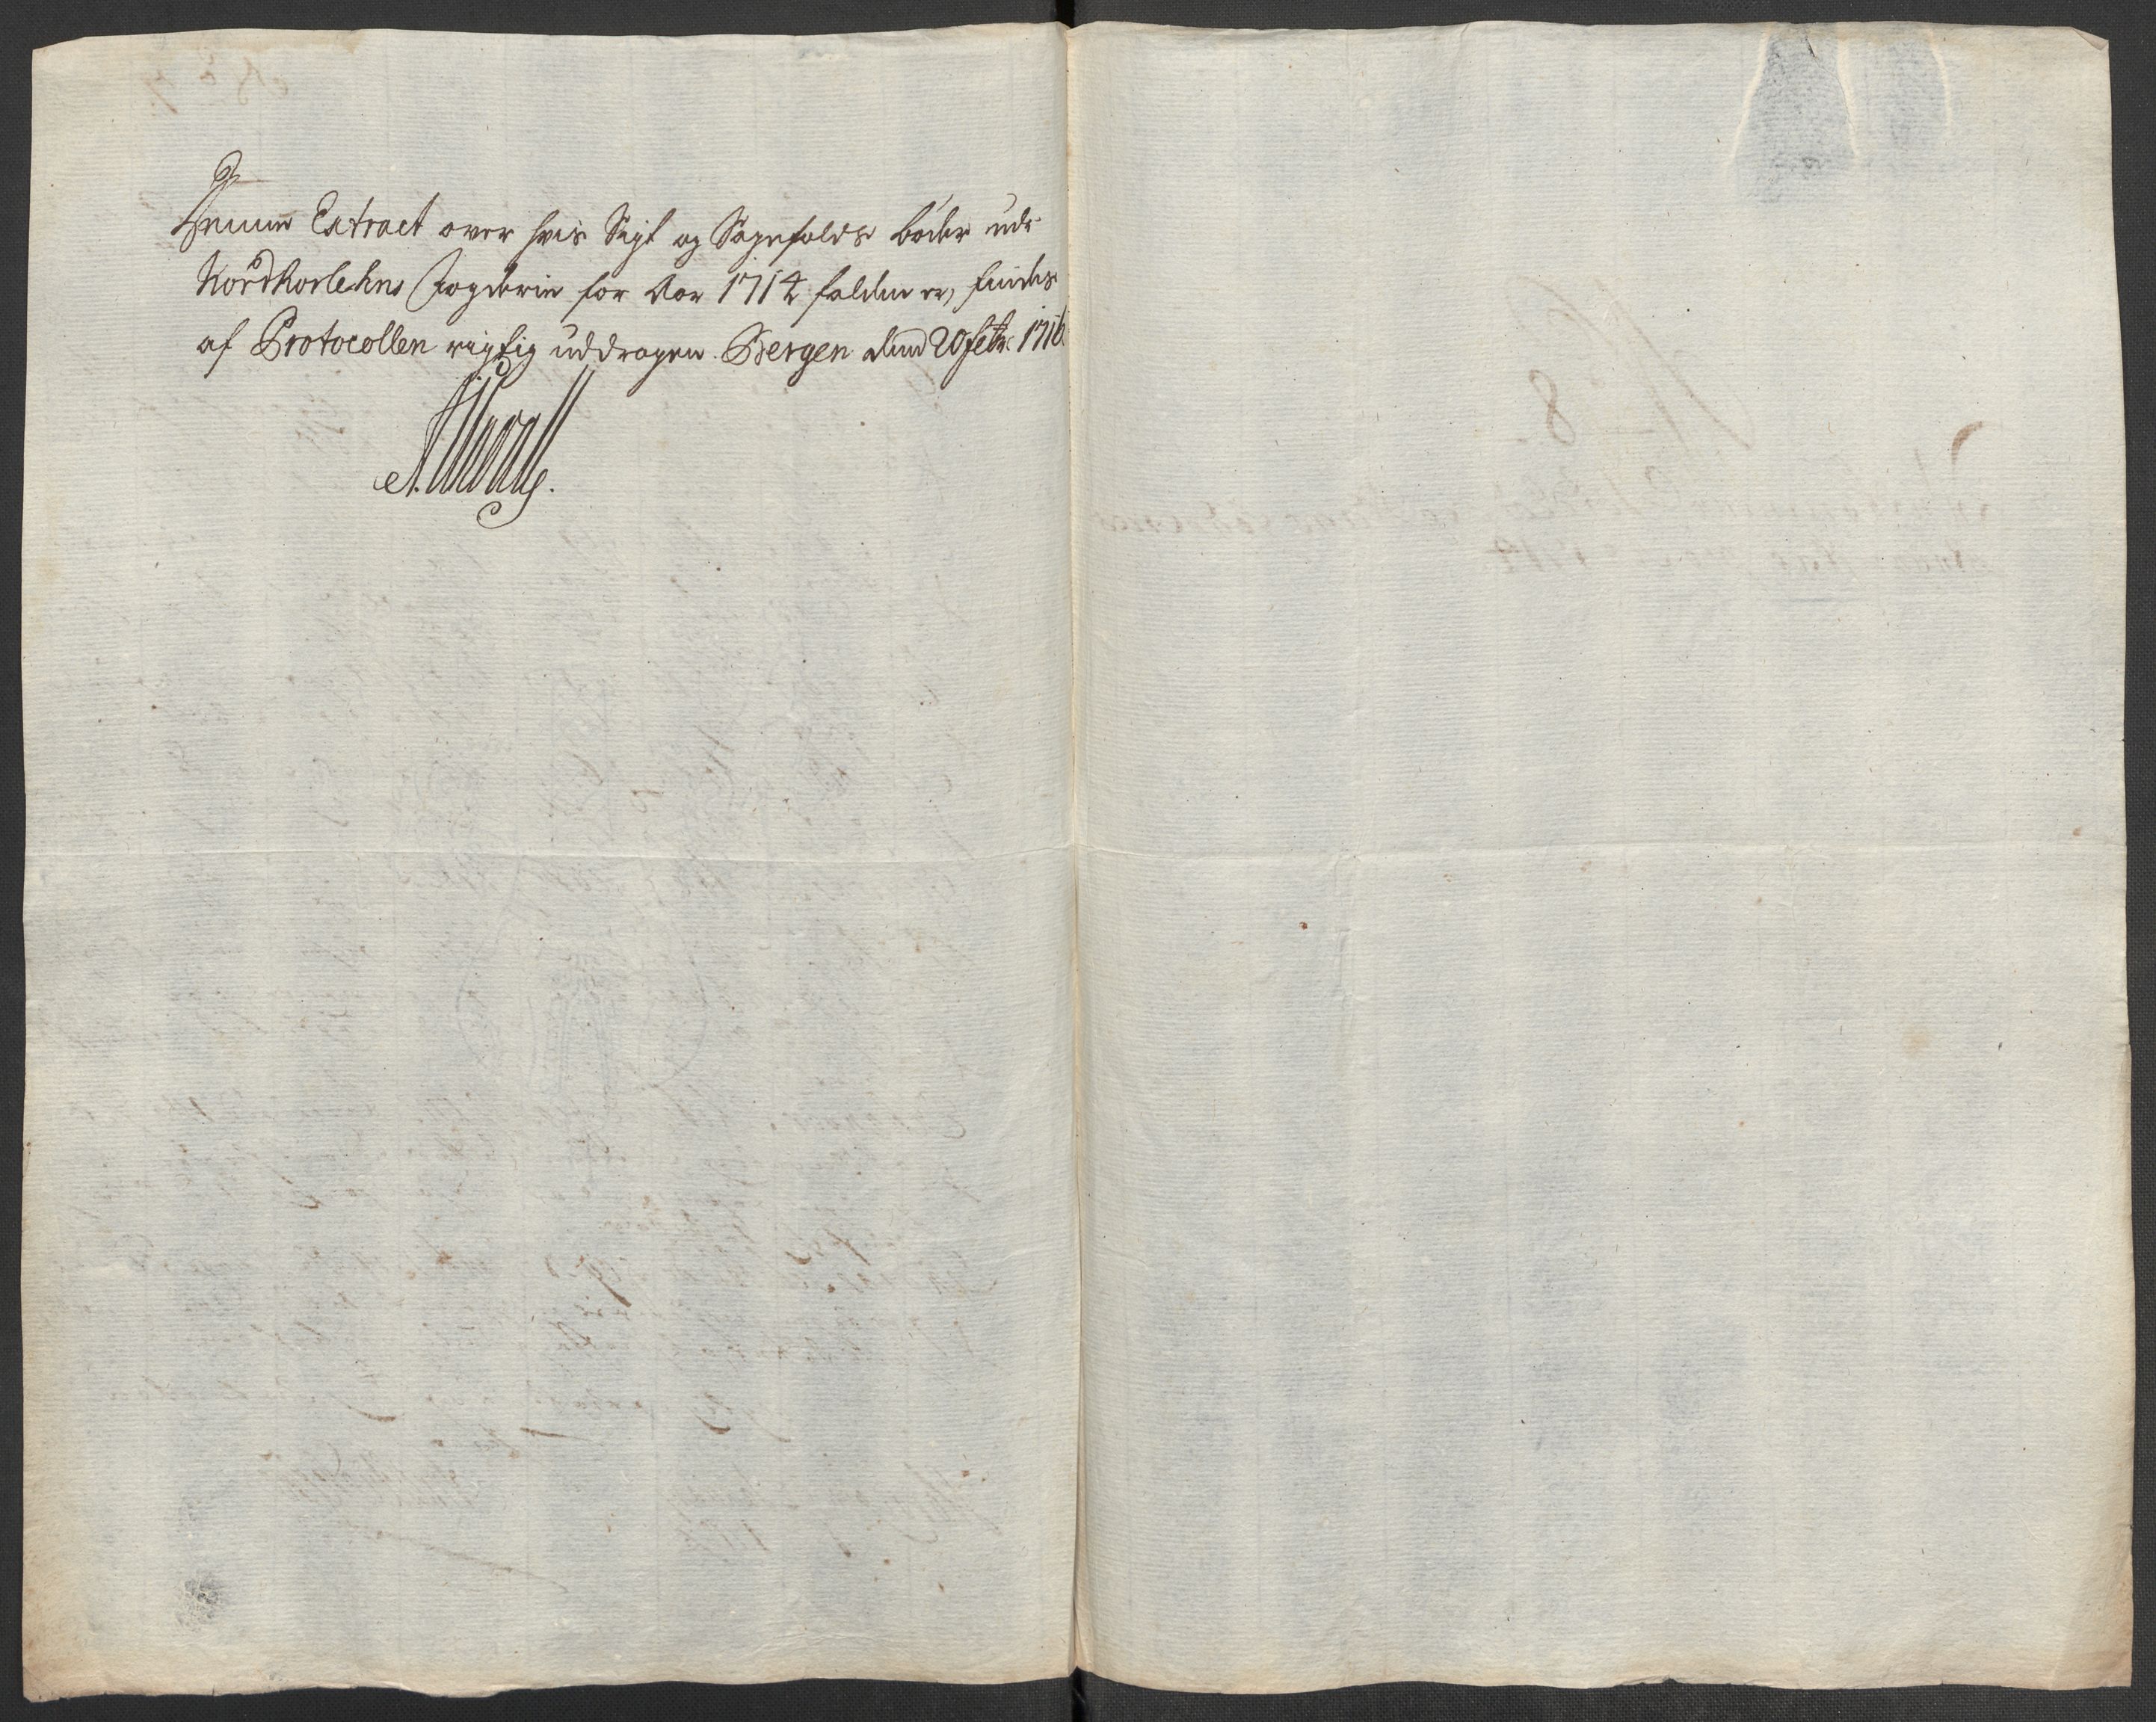 Denne Extract over hvis Sigt og Sagefalds bøder udi
Nordhorlehns Fogderie for Aar 1714 falden er, findes
af Protocollen rigtig uddragen. Bergen dend 20 febr: 1716